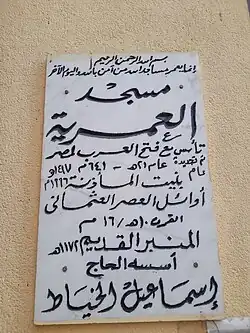 بسم الله الرحمن الرحيم
إنما يعمر مساجد الله من آمن بالله واليوم الآخر
مسجد
العمرية
تأسس مع فتح العرب لمصر
عام ٢١هـ - ٦٤١م
بنيت المأذنة
أوائل العصر العثماني
القرن ١٠هـ / ١٦ م
المنبر القديم ١١٧٢هـ
أسسه الحاج
إسماعيل الخياط